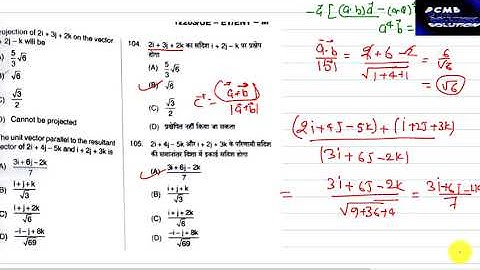 1220SUE – ETIENT – M
rojection of 2i + 3j + 2k on the vector
+ 2j – k will be
(A) 5/3 √6
(B) √6
(C) √3/2
D) Cannot be projected
he unit vector parallel to the resultant
vector of 2i + 4j - 5k and i + 2j + 3k is
(A) 3i + 6j – 2k / 7
(B) i + j + k / √3
(C) i + j + 2k / √6
(D) –i – j + 8k / √69
104. 2i + 3j + 2k का सदिश i + 2j – k पर प्रक्षेप
होगा
(A) 5/3 √6
(B) √6
(C) √3/2
(D) प्रक्षेपित नहीं किया जा सकता
105. 2i + 4j – 5k और i + 2j + 3k के परिणामी सदिश
की समान्तर दिशा में इकाई सदिश होगा
(A) 3i + 6j – 2k / 7
(B) i + j + k / √3
(C) i + j + 2k / √6
(D) –i – j + 8k / √69
c⃗ = (a⃗ + b⃗) / |a⃗ + b⃗|
PCMB
SOLUTION
a⃗.b / |b⃗| = 2 + 6 - 2 / √1+4+1 = 6/√6
= √6
(2i + 4j – 5k) + (i + 2j + 3k)
|3i + 6j – 2k|
= 3i + 6j – 2k / √9+36+4 = 3i + 6j – 2k / 7